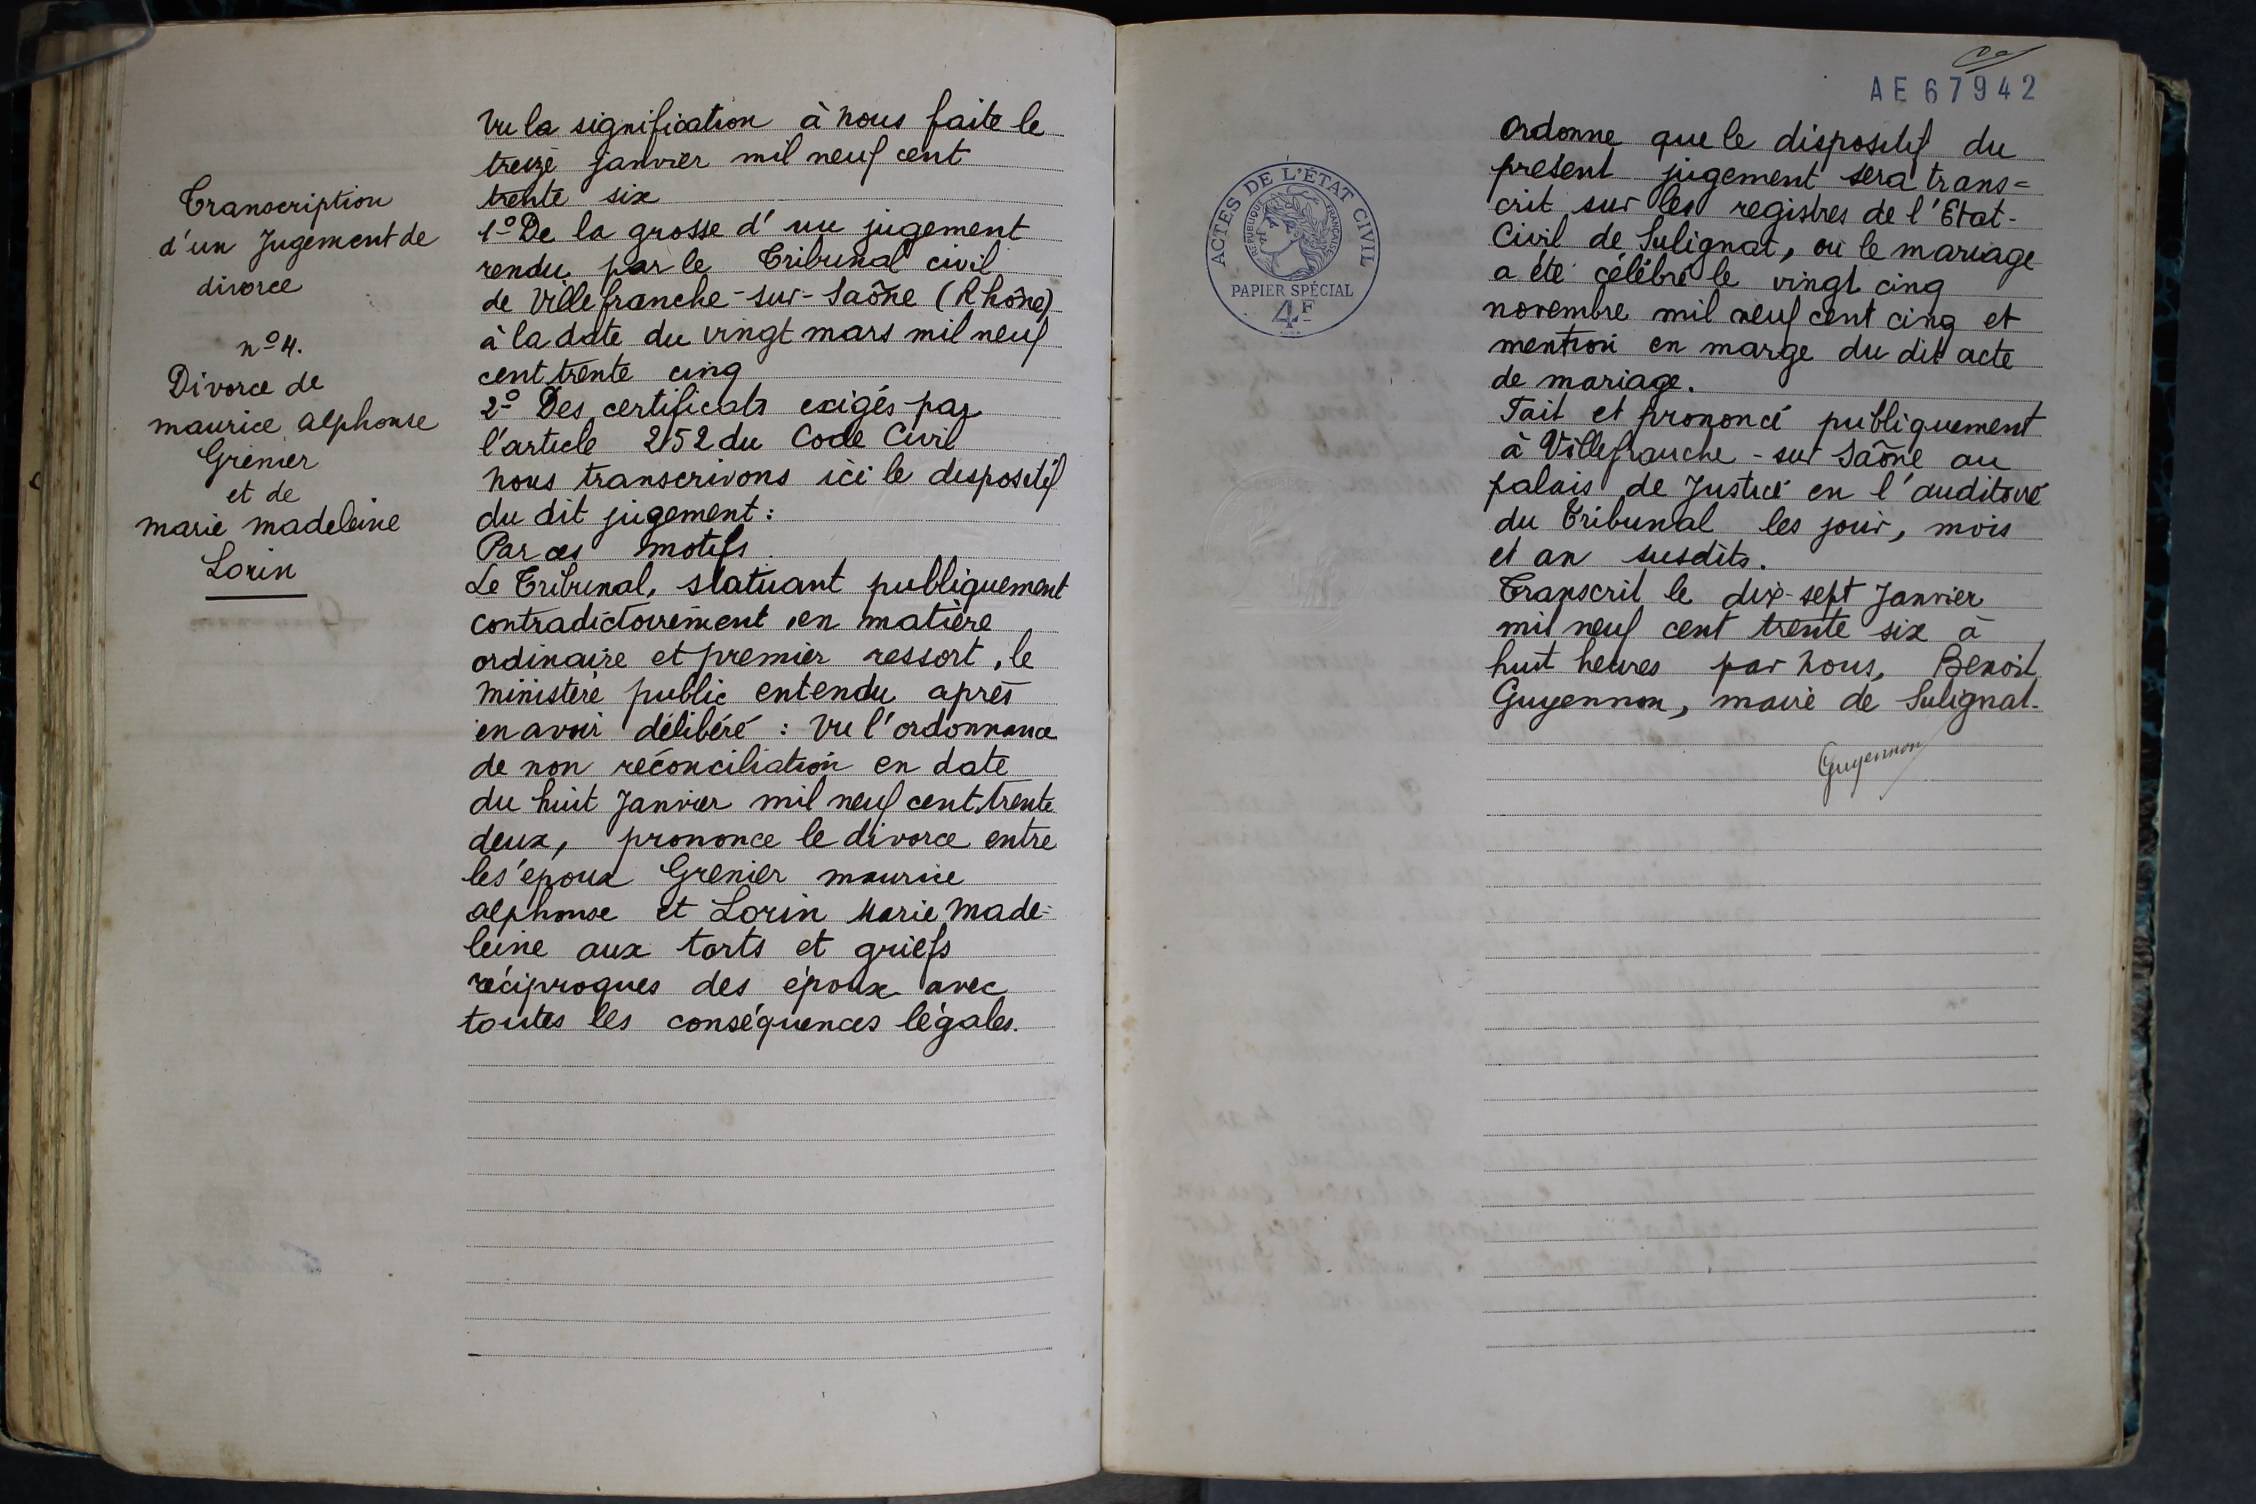 Transcription
d'un Jugement de
divorce
nº 4.
Divorce de
maurice alphonse
Grenier
et de
marie madeleine
Lorin
Vu la signification à nous faite le
treize janvier mil neuf cent
trente six
1º De la grosse d'un jugement
rendu par le Tribunal civil
de Villefranche-sur-Saône (Rhône)
à la date du vingt mars mil neuf
cent trente cinq
2º Des certificats exigés par
l'article 252 du Code Civil
nous transcrivons ici le dispositif
du dit jugement :
Par ces motifs
Le Tribunal, statuant publiquement
contradictoirement, en matière
ordinaire et premier ressort, le
ministère public entendu après
en avoir délibéré : Vu l'ordonnance
de non réconciliation en date
du huit Janvier mil neuf cent trente
deux, prononce le divorce entre
les époux Grenier maurice
alphonse et Lorin Marie Made-
leine aux torts et griefs
réciproques des époux avec
toutes les conséquences légales.
AE 67942
ACTES DE L'ÉTAT CIVIL
RÉPUBLIQUE FRANÇAISE
PAPIER SPÉCIAL
4F
Ordonne que le dispositif du
présent jugement sera trans=
crit sur les registres de l'Etat-
Civil de Sulignat, où le mariage
a été célébré le vingt cinq
novembre mil neuf cent cinq et
mention en marge du dit acte
de mariage.
Fait et prononcé publiquement
à Villefranche-sur Saône au
palais de Justice en l'auditoire
du Tribunal les jour, mois
et an susdits.
Transcrit le dix-sept Janvier
mil neuf cent trente six à
huit heures par nous, Benoit
Guyennon, maire de Sulignat.
Guyennon